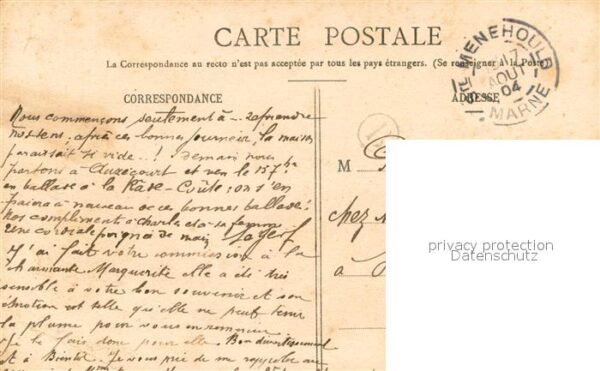 CARTE POSTALE
La Correspondance au recto n'est pas acceptée par tous les pays étrangers. (Se renseigner à la Poste)
STE MENEHOULD
17
AOUT
04
MARNE
CORRESPONDANCE
ADRESSE
Nous commençons seulement à
nos sens, après ces bonnes journées, la maison
paraissait si vide..! demain nous
partons à Auzécourt et vers le 15 7bre
en ballade à la
à nouveau de ces bonnes ballades!
Nos compliments à Charles et à sa femme
Une cordiale poignée de main
J'ai fait votre commission à la
charmante Marguerite elle a été très
sensible à votre bon souvenir et son
émotion est telle qu'elle ne peut tenir
la plume pour vous en remercier
je le fais donc pour elle. Bon divertissement
et à Bientôt. Je vous prie de me rappeler au
M
chez
à
privacy protection
Datenschutz